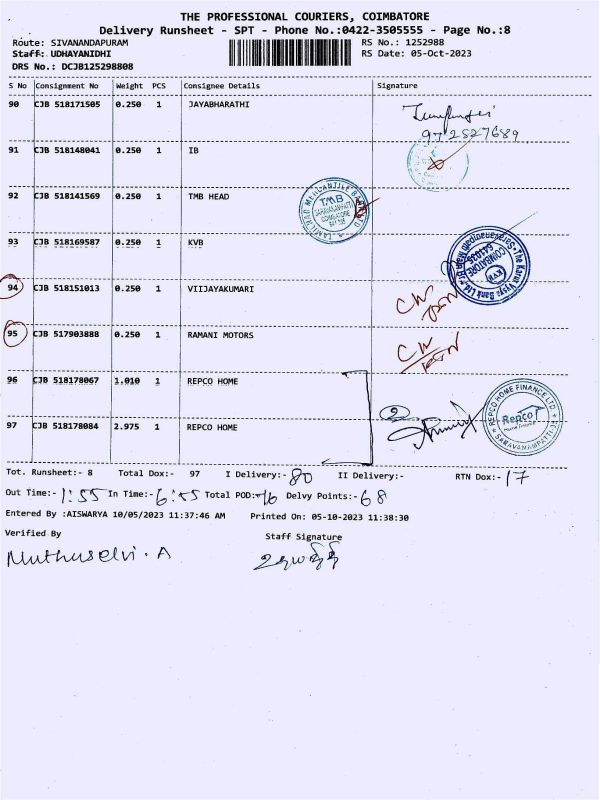 THE PROFESSIONAL COURIERS, COIMBATORE
Delivery Runsheet - SPT - Phone No.:0422-3505555 - Page No.:8
Route: SIVANANDAPURAM RS No.: 1252988
Staff: UDHAYANIDHI RS Date: 05-Oct-2023
DRS No.: DCJB125298808
S No Consignment No Weight PCS Consignee Details Signature
90 CJB 518171505 0.250 1 JAYABHARATHI
91 CJB 518148041 0.250 1 IB
92 CJB 518141569 0.250 1 TMB HEAD
TMB
COIMBATORE
93 CJB 518169587 0.250 1 KVB
The Karur Vysya Bank Ltd.
COIMBATORE
641035
KVB
94 CJB 518151013 0.250 1 VIIJAYAKUMARI
95 CJB 517903888 0.250 1 RAMANI MOTORS
96 CJB 518178067 1.010 1 REPCO HOME
97 CJB 518178084 2.975 1 REPCO HOME
2
REPCO HOME FINANCE LTD.
Repco
Home Finance
SARAVANAMPATTI
Tot. Runsheet:- 8 Total Dox:- 97 I Delivery:- 80 II Delivery:- RTN Dox:- 17
Out Time:- 1:55 In Time:- 6:55 Total POD:- 16 Delvy Points:- 68
Entered By :AISWARYA 10/05/2023 11:37:46 AM Printed On: 05-10-2023 11:38:30
Verified By Staff Signature
Muthuselvi. A